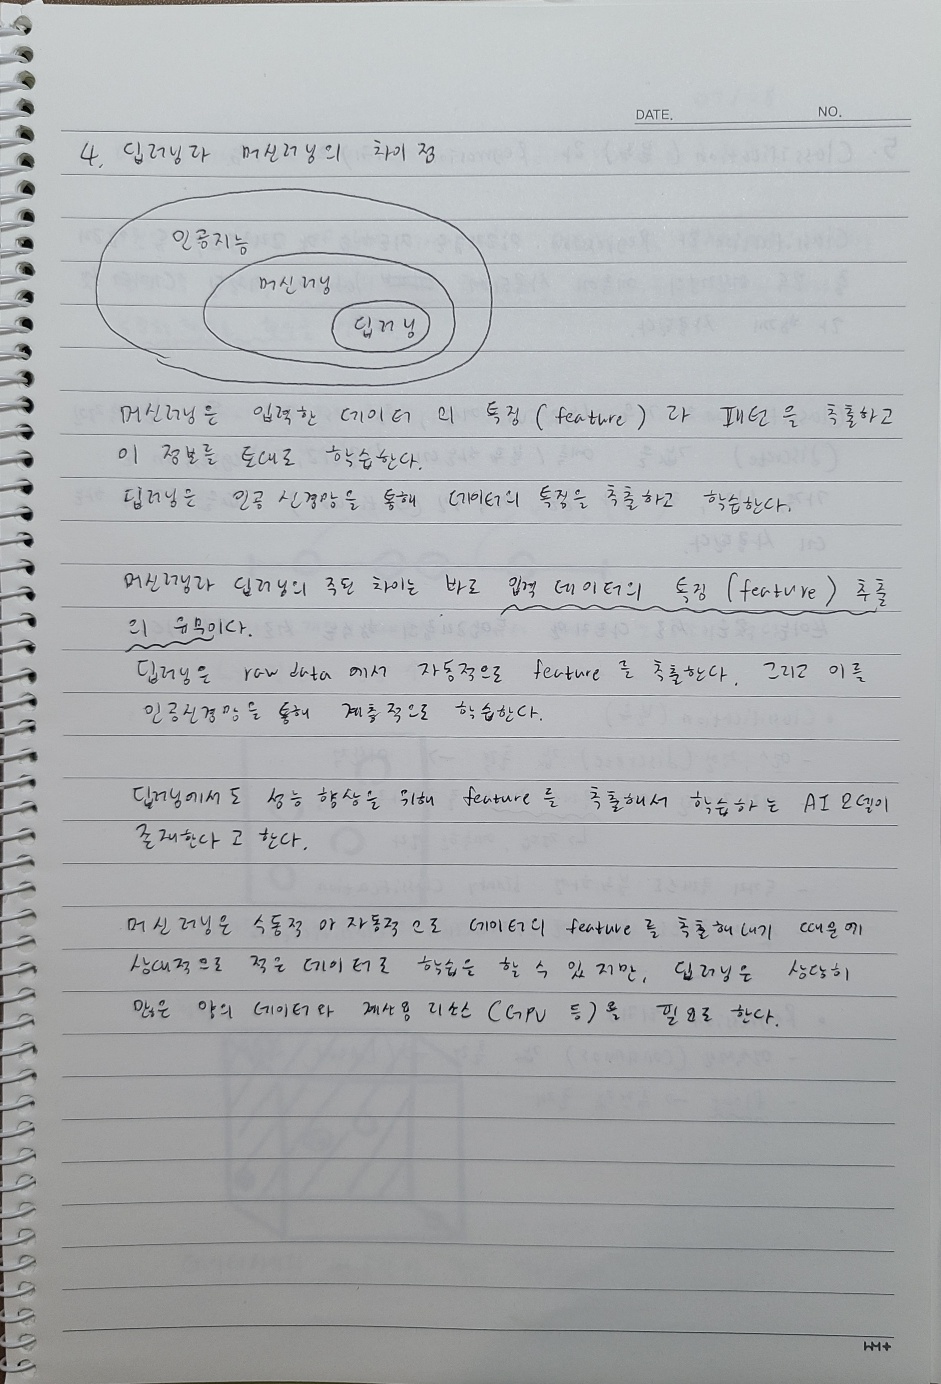 DATE. NO.
4. 딥러닝과 머신러닝의 차이점
인공지능
머신러닝
딥러닝
머신러닝은 입력한 데이터의 특징(feature)과 패턴을 추출하고
이 정보를 토대로 학습한다.
딥러닝은 인공 신경망을 통해 데이터의 특징을 추출하고 학습한다.
머신러닝과 딥러닝의 주된 차이는 바로 입력 데이터의 특징(feature) 추출
의 유무이다.
딥러닝은 raw data에서 자동적으로 feature를 추출한다. 그리고 이를
인공신경망을 통해 계층적으로 학습한다.
딥러닝에서도 성능 향상을 위해 feature를 추출해서 학습하는 AI 모델이
존재한다고 한다.
머신러닝은 수동적 아 자동적으로 데이터의 feature를 추출해내기 때문에
상대적으로 적은 데이터로 학습을 할 수 있지만, 딥러닝은 상당히
많은 양의 데이터와 계산용 리소스(GPU 등)을 필요로 한다.